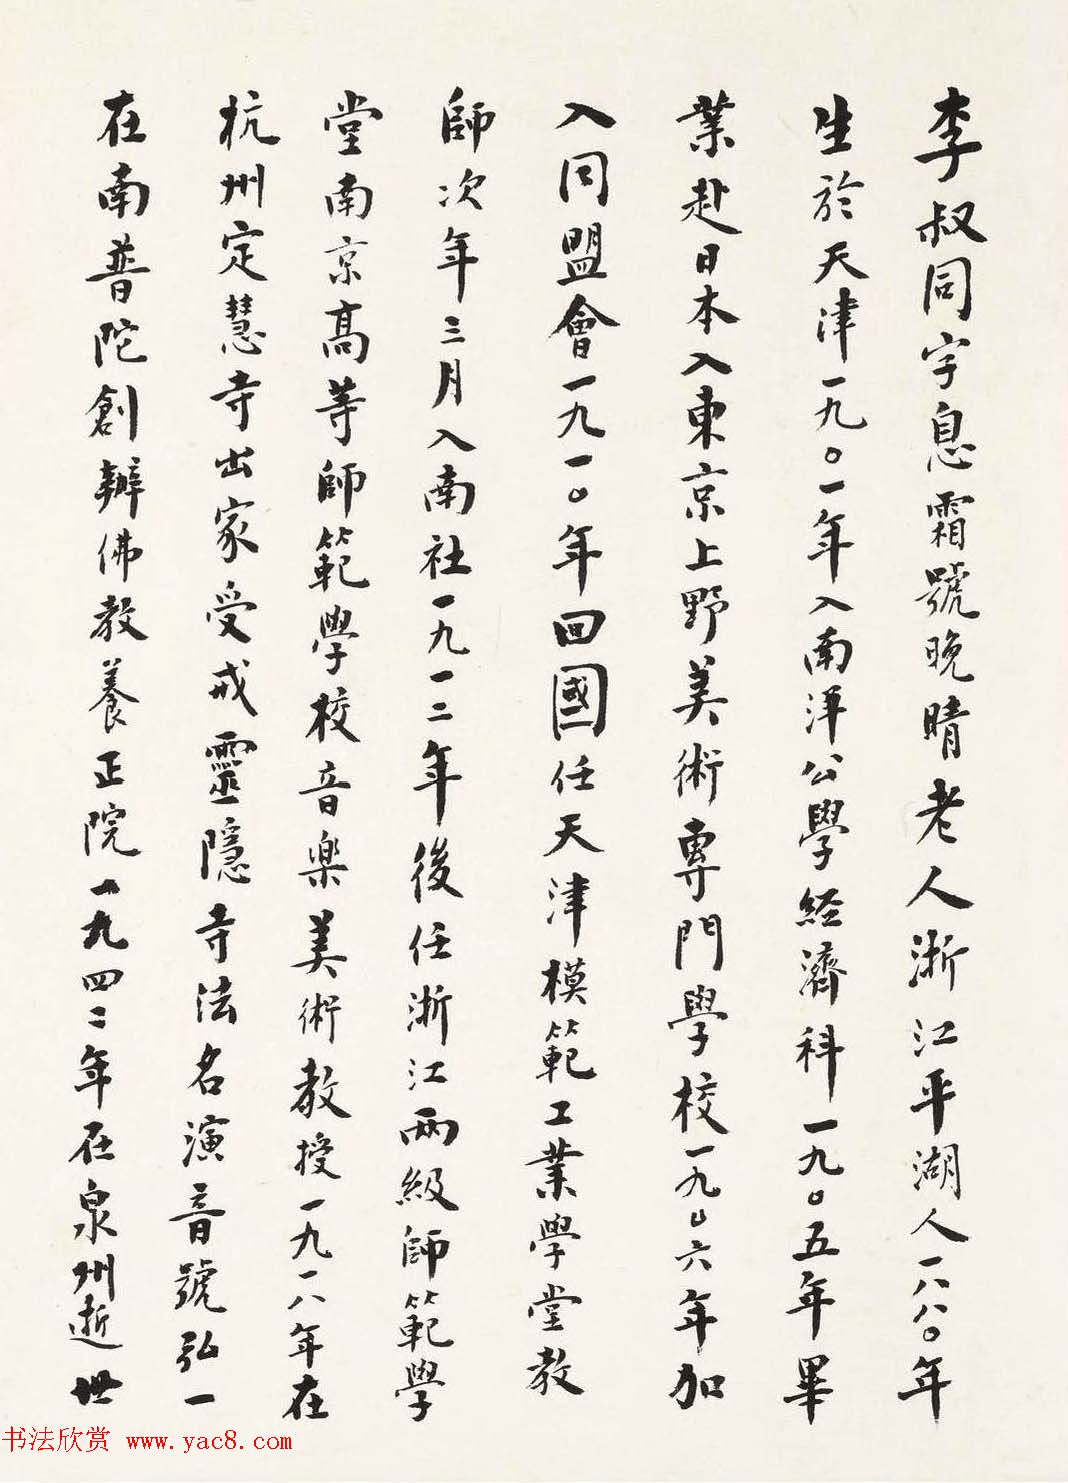 李叔同字息霜號晚晴老人浙江平湖人一八八〇年
生於天津一九〇一年入南洋公學經濟科一九〇五年畢
業赴日本入東京上野美術專門學校一九〇六年加
入同盟會一九一〇年回國任天津模範工業學堂教
師次年三月入南社一九一二年後任浙江兩級師範學
堂南京高等師範學校音樂美術教授一九一八年在
杭州定慧寺出家受戒靈隱寺法名演音號弘一
在南普陀創辦佛教養正院一九四二年在泉州逝世
书法欣赏 www.yac8.com